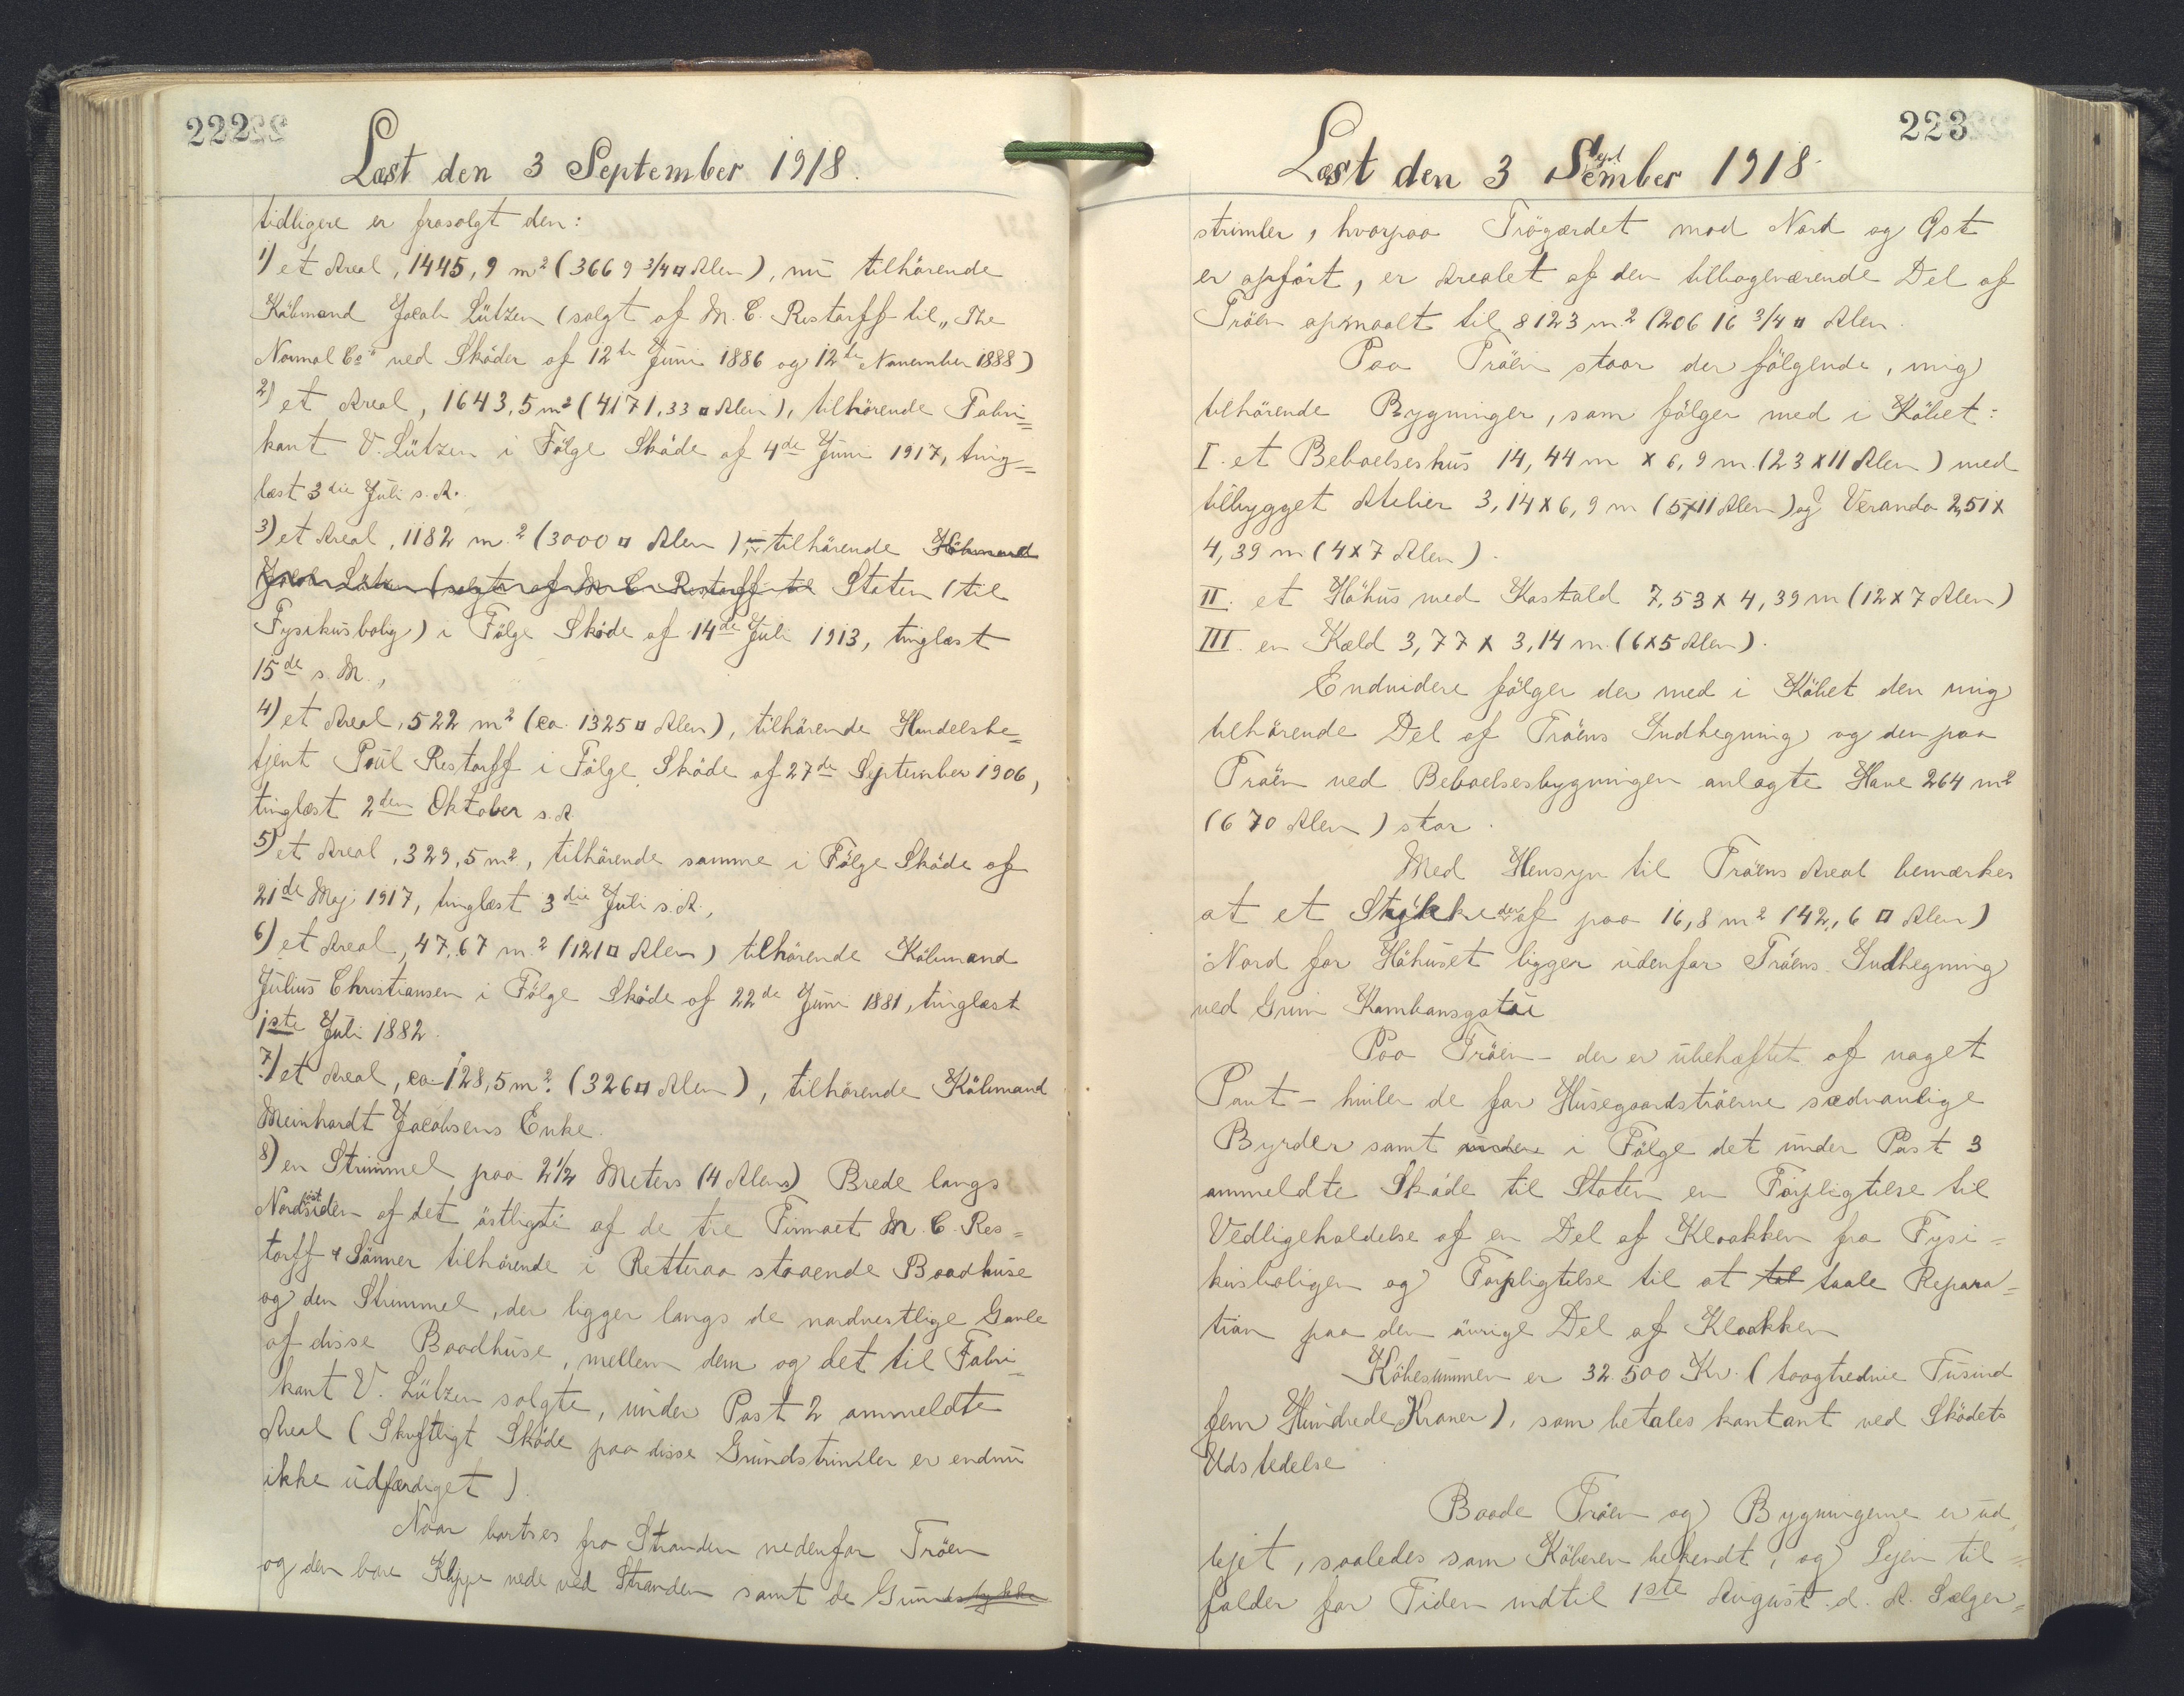 222
Læst den 3 September 1918.
tidligere er frasolgt den:
1) et Areal, 1445,9 m² (3669 3/4 □ Alen), nu tilhörende
Köbmand Jacob Lützen (solgt af M. C. Restorff til „The
Normal Co" ved Skøder af 12te Juni 1886 og 12te November 1888)
2) et Areal, 1643,5 m² (4171,33 □ Alen), tilhörende Fabri=
kant V. Lützen i Fölge Sköde af 4de Juni 1917, ting=
læst 3die Juli s. A.
3) et Areal, 1182 m² (3000 □ Alen), tilhörende Köbmand
Jacob Lützen (solgt af M. C. Restorff til Staten (til
Fysikusbolig) i Fölge Sköde af 14de Juli 1913, tinglæst
15de s. M.,
4) et Areal, 522 m² (ca. 1325 □ Alen), tilhörende Handelsbe=
tjent Poul Restorff i Fölge Sköde af 27de September 1906,
tinglæst 2den Oktober s. A.
5) et Areal, 329,5 m², tilhörende samme i Fölge Sköde af
21de Maj 1917, tinglæst 3die Juli s. A.,
6) et Areal, 47,67 m² (121 □ Alen) tilhörende Köbmand
Julius Christiansen i Fölge Sköde af 22de Juni 1881, tinglæst
1ste Juli 1882.
7) et Areal, ca. 128,5 m² (326 □ Alen), tilhörende Köbmand
Meinhardt Jacobsens Enke.
8) en Strimmel paa 2 1/2 Meters (4 Alens) Brede langs
Nordöstsiden af det östligste af de tre Firmaet M. C. Res=
torff & Sönner tilhörende i Retteraa staaende Baadhuse
og den Strimmel, der ligger langs de nordvestlige Gavle
af disse Baadhuse, mellem dem og det til Fabri=
kant V. Lützen solgte, under Post 2 ammeldte
Areal (Skriftligt Sköde paa disse Grundstrimler er endnu
ikke udfærdiget).
Naar bortses fra Stranden nedenfor Tröen
og den bare Klippe nede ved Stranden samt de Grundstykke
223
Læst den 3 September 1918
strimler, hvorpaa Trögærdet mod Nord og Öst
er opført, er Arealet af den tilbageværende Del af
Tröen opmaalt til 8123 m² (20616 3/4 □ Alen.
Paa Tröen staar der fölgende, mig
tilhörende Bygninger, som fölger med i Köbet:
I. et Beboelseshus 14,44 m x 6,9 m. (23 x 11 Alen) med
tilbygget Atelier 3,14 x 6,9 m (5 x 11 Alen) og Veranda 2,51 x
4,39 m (4 x 7 Alen).
II. et Höhus med Kostald 7,53 x 4,39 m (12 x 7 Alen)
III. en Kæld 3,77 x 3,14 m. (6 x 5 Alen).
Endvidere fölger der med i Köbet den mig
tilhörende Del af Tröens Indhegning og den paa
Tröen ved Beboelsesbygningen anlagte Have 264 m²
(670 Alen) stor.
Med Hensyn til Tröens Areal bemærkes
at et Stykke deraf paa 16,8 m² (42,6 □ Alen)
Nord for Höhuset ligger udenfor Tröens Indhegning
ved Grim Kambansgöta
Paa Tröen - der er ubehæftet af noget
Pant - hviler de for Husegaardströerne sædvanlige
Byrder samt under i Fölge det under Post 3
ammeldte Sköde til Staten en Forpligtelse til
Vedligeholdelse af en Del af Kloakken fra Fysi=
kusboligen og Forpligtelse til at tal taale Repara=
tion paa den övrige Del af Kloakken
Köbesummen er 32.500 Kr. (toogtredive Tusind
fem Hundrede Kroner), som betales kontant ved Sködets
Udstedelse
Baade Tröen og Bygningerne er ud=
lejet, saaledes som Köberen bekendt, og Lejen til=
falder for Tiden indtil 1ste August d. A. Sælger=